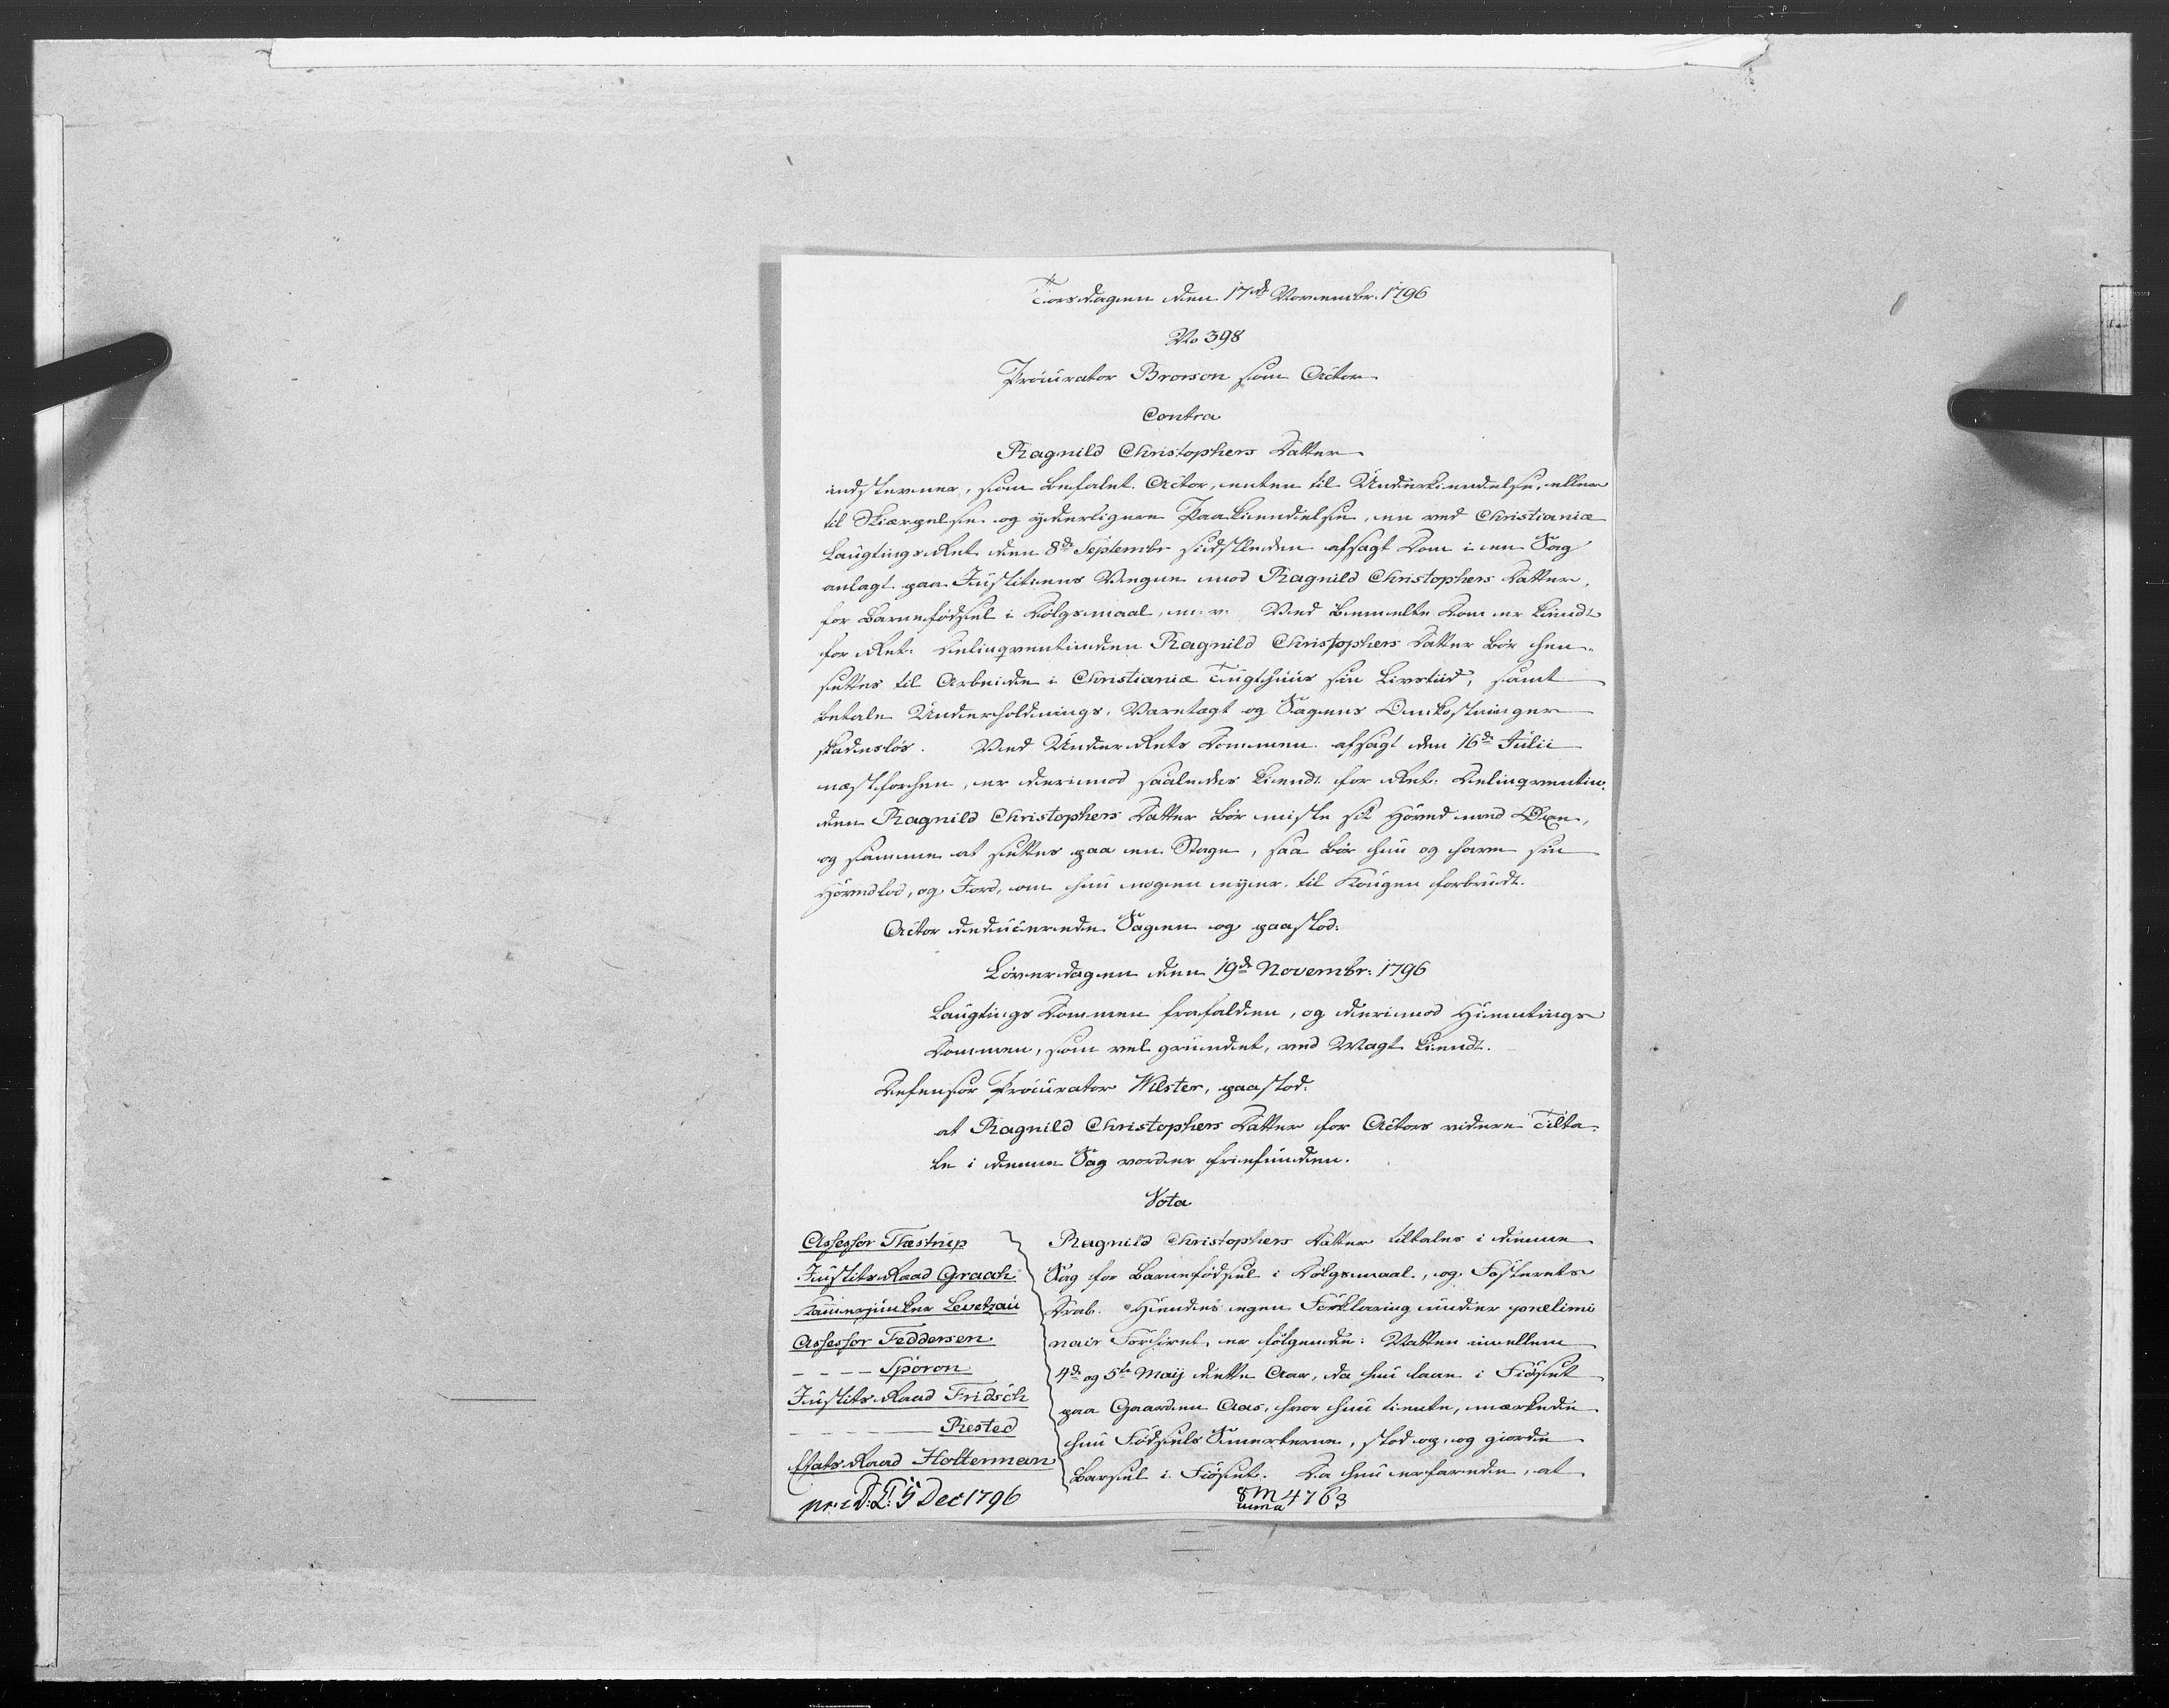 Torsdagen den 17de Novembr. 1796
No 398
Procurator Brorson som Actor
Contra
Ragnild Christophers Datter
indstevner, som befalet Actor, enten til Underkiendelse, eller
til Skiærpelse og yderligere Paakiendelse, en ved Christianiæ
Laugtings Ret den 8de Septembr sidstleden afsagt Dom i en Sag
anlagt paa Justitiens Vegne mod Ragnild Christophers Datter,
for Barnefødsel i Dølgsmaal, m. v. Ved bemelte Dom er kiendt
for Ret: Delinqventinden Ragnild Christophers Datter bør hen-
settes til Arbeide i Christianiæ Tugthuus sin Livstiid, samt
betale Underholdnings, Varetægt og Sagens Omkostninger
skadesløs. Ved Under Rets Dommen afsagt den 16de Julii
næstforhen, er derimod saaledes kiendt for Ret: Delinqventin-
den Ragnild Christophers Datter bør miste sit Hoved med Øxe,
og samme at settes paa en Stage, saa bør hun og have sin
Hovedlod, og Jord, om hun nogen eyer, til Kongen forbrudt.
Actor deducerede Sagen og paastod:
Løverdagen den 19de Novembr: 1796
Laugtings Dommen frafalden, og derimod Hiemtings
Dommen, som vel grundet, ved Magt kiendt.
Defensor Procurator Wilster, paastod:
at Ragnild Christophers Datter for Actors videre Tilta-
le i denne Sag vorder friefunden.
Vota
Assessor Thestrup
Justits Raad Graah
Kammerjunker Levetzau
Assessor Feddersen
- - - - Sporon
Justits Raad Fridsch
- - - - - Rested
Etats Raad Holterman
Ragnild Christophers Datter tiltales i denne
Sag for Barnefødsel i Dølgsmaal, og Fosterets
Drab. Hendes egen Forklaring under prælimi
nair Forhøret, er følgende: Natten imellem
4de og 5te Maij dette Aar, da hun laae i Fiøset
paa Gaarden Aas, hvor hun tiente, mærkede
hun Fødsels Smerterne, stod op, og giorde
Barsel i Fiøset. Da hun erfarede, at
5 Dec 1796
4763